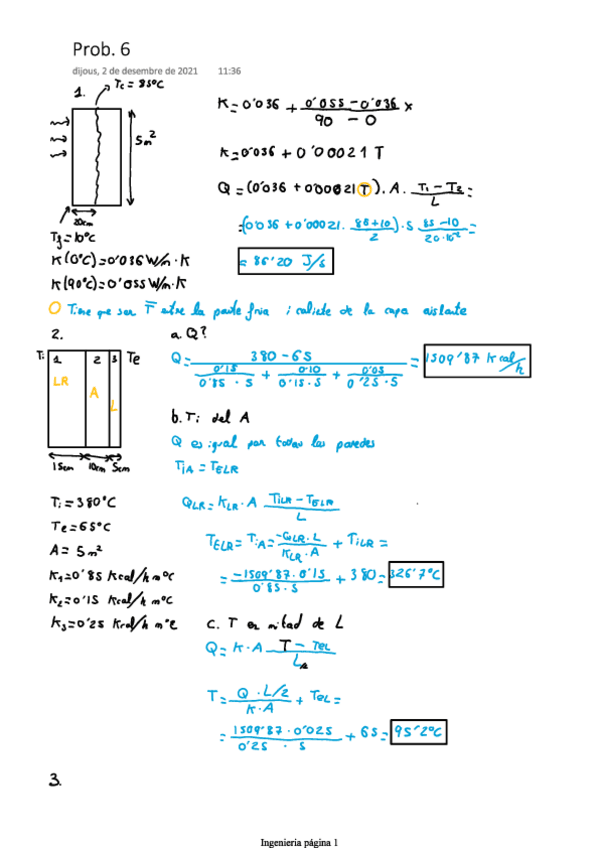 Prob. 6
dijous, 2 de desembre de 2021 11:36
1. Tc = 85°C
5m²
20cm
Tf = 10°C
K(0°C)=0'036 W/m·K
K(90°C)=0'055 W/m·K
K = 0'036 + (0'055 - 0'036)/(90 - 0) x
K = 0'036 + 0'00021 T
Q = (0'036 + 0'00021 T). A. (T1 - T2)/L =
=(0'036 + 0'00021. (85+10)/2)·5 (85-10)/(20·10⁻²) =
= 86'20 J/s
Tiene que ser T̅ entre la parte fria i caliente de la capa aislante
2.
Ti 1 2 3 Te
LR A L
15cm 10cm 5cm
Ti = 380°C
Te = 65°C
A = 5m²
K1=0'85 Kcal/h m°C
K2=0'15 Kcal/h m°C
K3=0'25 Kcal/h m°C
a. Q?
Q = (380 - 65)/(0'15/(0'85·5) + 0'10/(0'15·5) + 0'05/(0'25·5)) = 1509'87 Kcal/h
b. Ti del A
Q es igual por todas las paredes
TiA = TELR
QLR = KLR · A (TiLR - TELR)/L
TELR = TiA = (-QLR · L)/(KLR · A) + TiLR =
= (-1509'87·0'15)/(0'85·5) + 380 = 326'7°C
c. T en mitad de L
Q = K·A (T - TEL)/L2
T = (Q · L/2)/(K·A) + TEL =
= (1509'87 · 0'025)/(0'25 · 5) + 65 = 95'2°C
3.
Ingenieria página 1